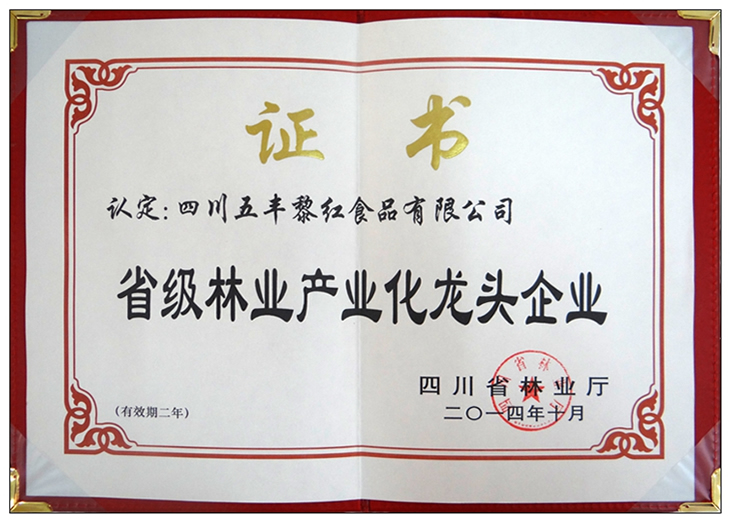 证书
认定:四川五丰黎红食品有限公司
省级林业产业化龙头企业
四川省林业厅
(有效期二年)
二〇一四年十月